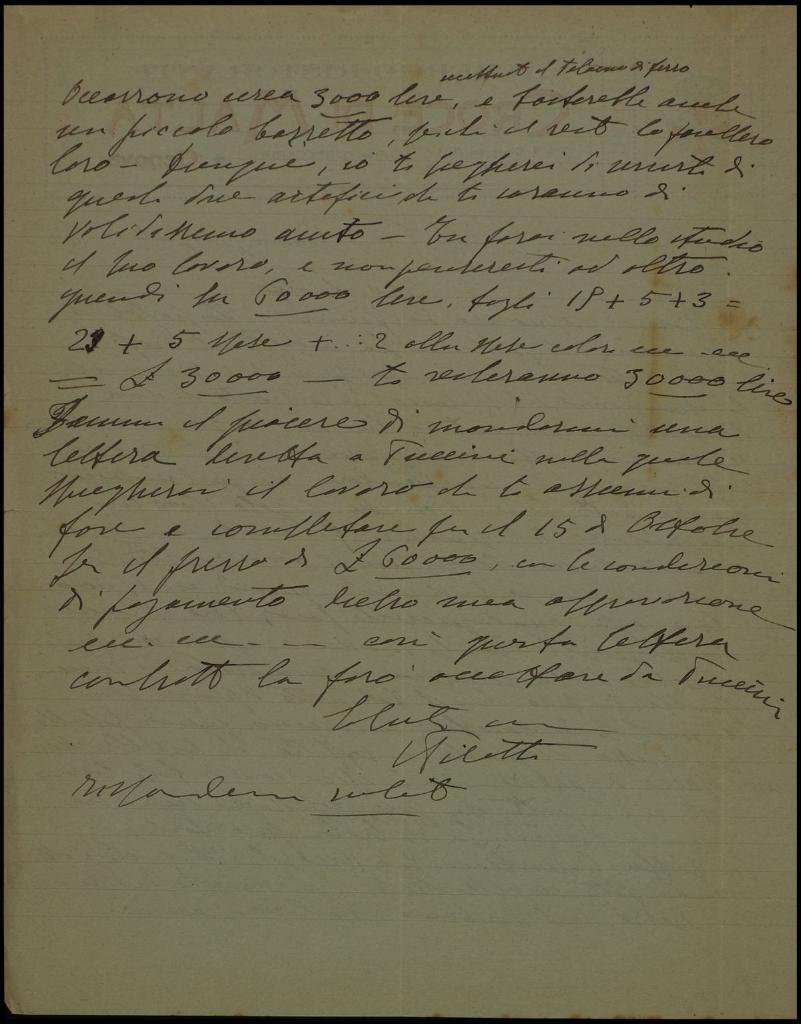 Occorrono circa 3000 lire, e basterebbe anche
un piccolo bozzetto, perchè il resto lo farebbero
loro — Dunque, io ti pregherei di unirti di
questi due artefici che ti saranno di
validissimo aiuto — Tu farai nello studio
il tuo lavoro, e non penseresti ad altro.
quindi su 60000 lire. togli 18 + 5 + 3 =
+ 5 spese + 2 altre spese
= £ 30000 — ti resteranno 30000 lire
Fammi il piacere di mandarmi una
lettera diretta a Puccini nella quale
spiegherai il lavoro che ti assumi di
fare e completare per il 15 di Ottobre
per il prezzo di £ 60000, con le condizioni
di pagamento dietro mia approvazione
ecc. ecc. — così questa lettera
contratto la farò accettare da Puccini
Pilotti
rispondimi subito